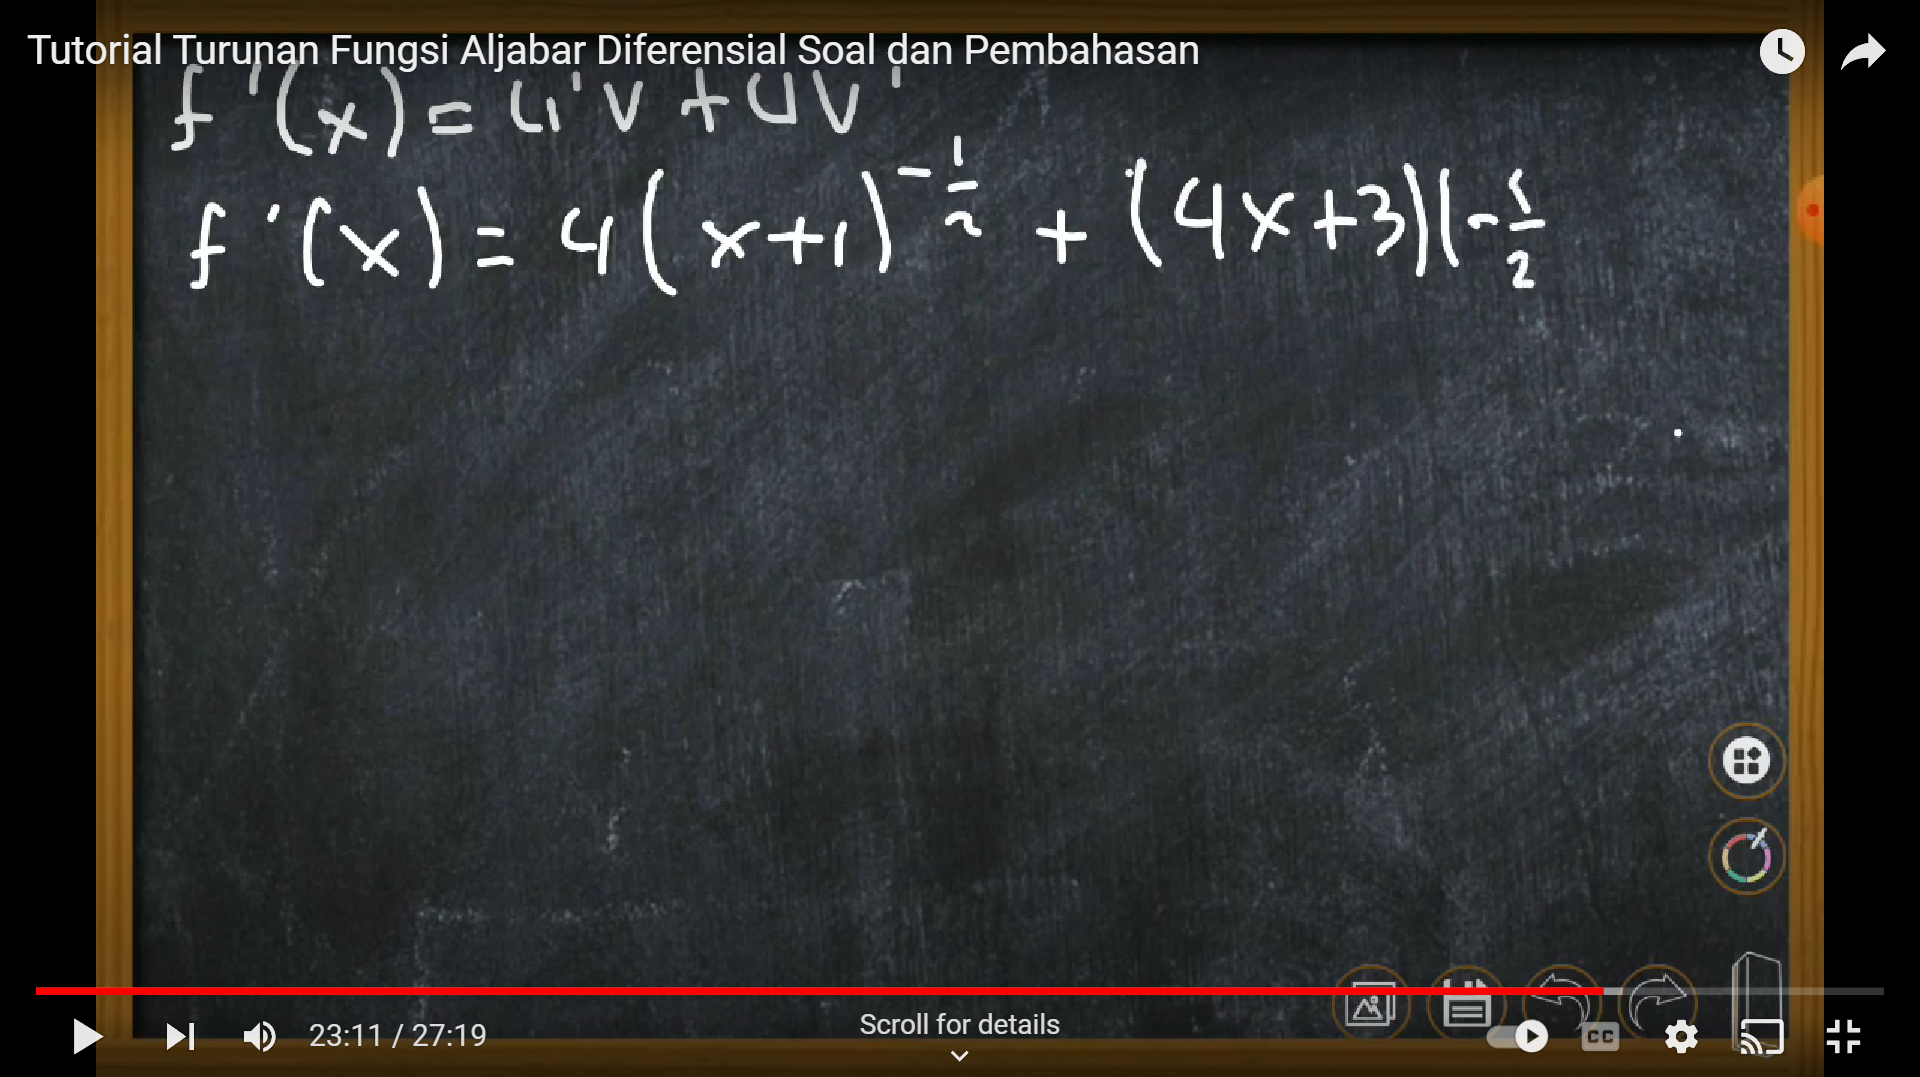 Tutorial Turunan Fungsi Aljabar Diferensial Soal dan Pembahasan
f'(x) = u'v + uv'
f'(x) = 4(x+1)^-1/2 + (4x+3)(-1/2
23:11 / 27:19
Scroll for details
CC